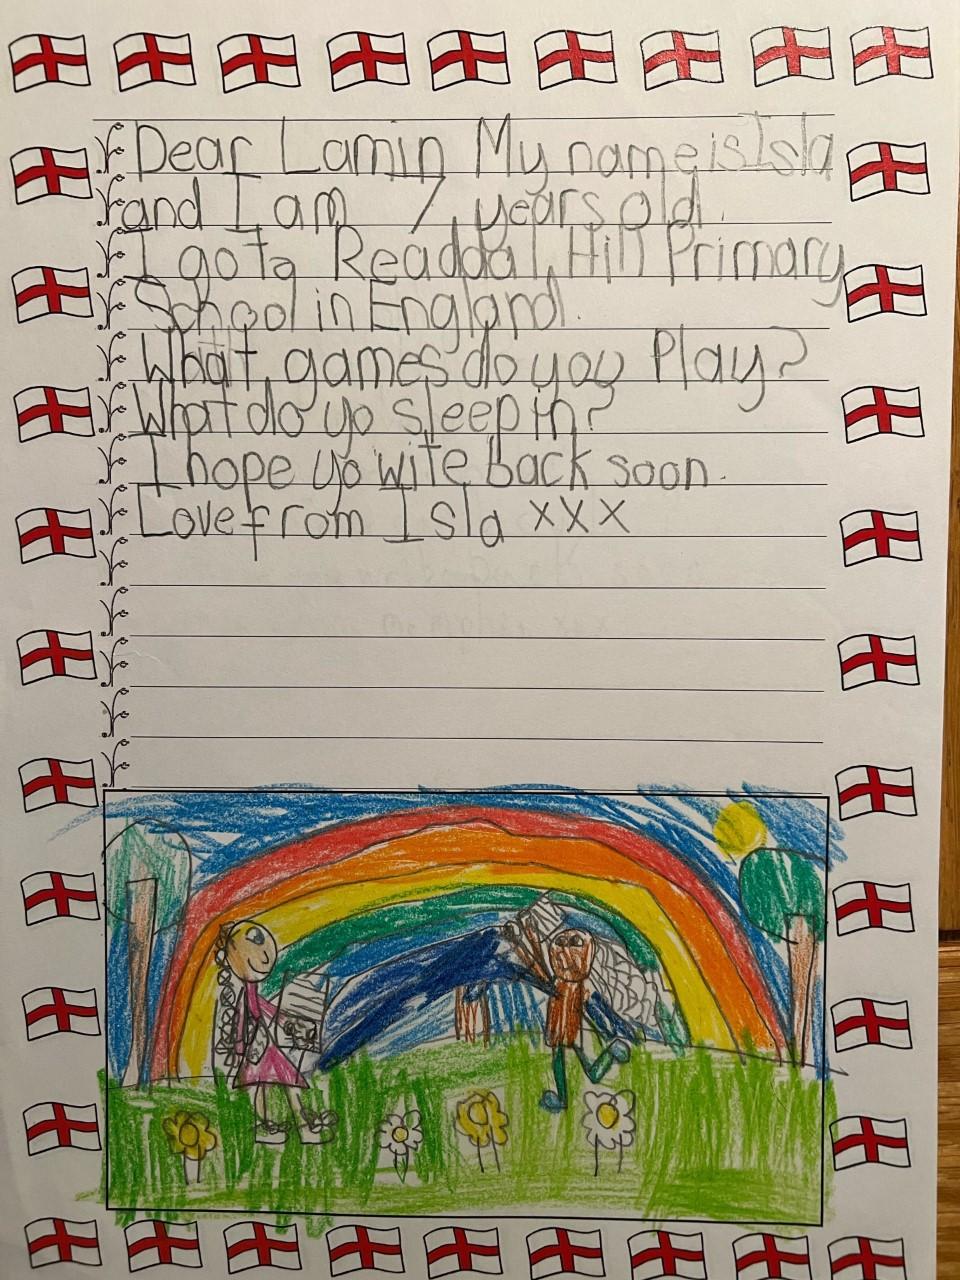 Dear Lamin My name is Isla
and I am 7 years old.
I go to Readdal Hill Primary
School in England.
What games do you Play?
What do yo sleep in?
I hope yo wite back soon.
Love from Isla xxx